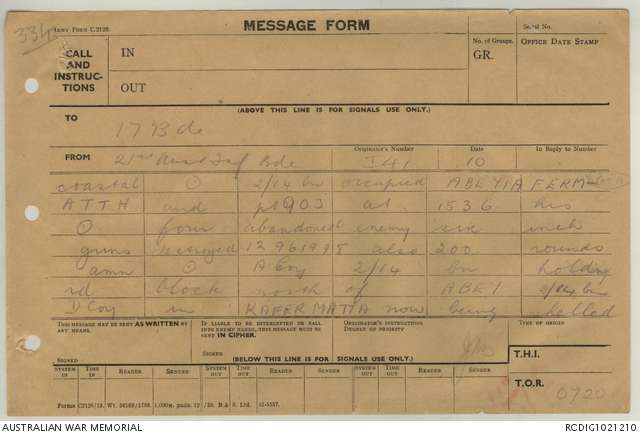 334
ARMY FORM C.2128.
MESSAGE FORM
Serial No.
CALL AND INSTRUCTIONS
IN
OUT
No. of Groups.
GR.
OFFICE DATE STAMP
(ABOVE THIS LINE IS FOR SIGNALS USE ONLY.)
TO
17 Bde
FROM
21st Aust Inf Bde
Originator's Number
I 41
Date
10
In Reply to Number
coastal ⊙ 2/14 bn occupied ABEYIA FERM
ATTH and pt 903 at 1536 hrs
⊙ four abandoned enemy six inch
guns destroyed 12961998 also 200 rounds
amn ⊙ A Coy 2/14 bn holding
rd block north of ABEY 2/14 bn
D Coy in KAFER MATTA now being shelled
THIS MESSAGE MAY BE SENT AS WRITTEN BY ANY MEANS.
IF LIABLE TO BE INTERCEPTED OR FALL INTO ENEMY HANDS, THIS MESSAGE MUST BE SENT IN CIPHER.
ORIGINATOR'S INSTRUCTIONS
DEGREE OF PRIORITY
TIME OF ORIGIN
SIGNED
SIGNED
(BELOW THIS LINE IS FOR SIGNALS USE ONLY.)
SYSTEM IN
TIME IN
READER
SENDER
SYSTEM OUT
TIME OUT
READER
SENDER
SYSTEM OUT
TIME OUT
READER
SENDER
T.H.I.
T.O.R.
0720
AUSTRALIAN WAR MEMORIAL
RCDIG1021210